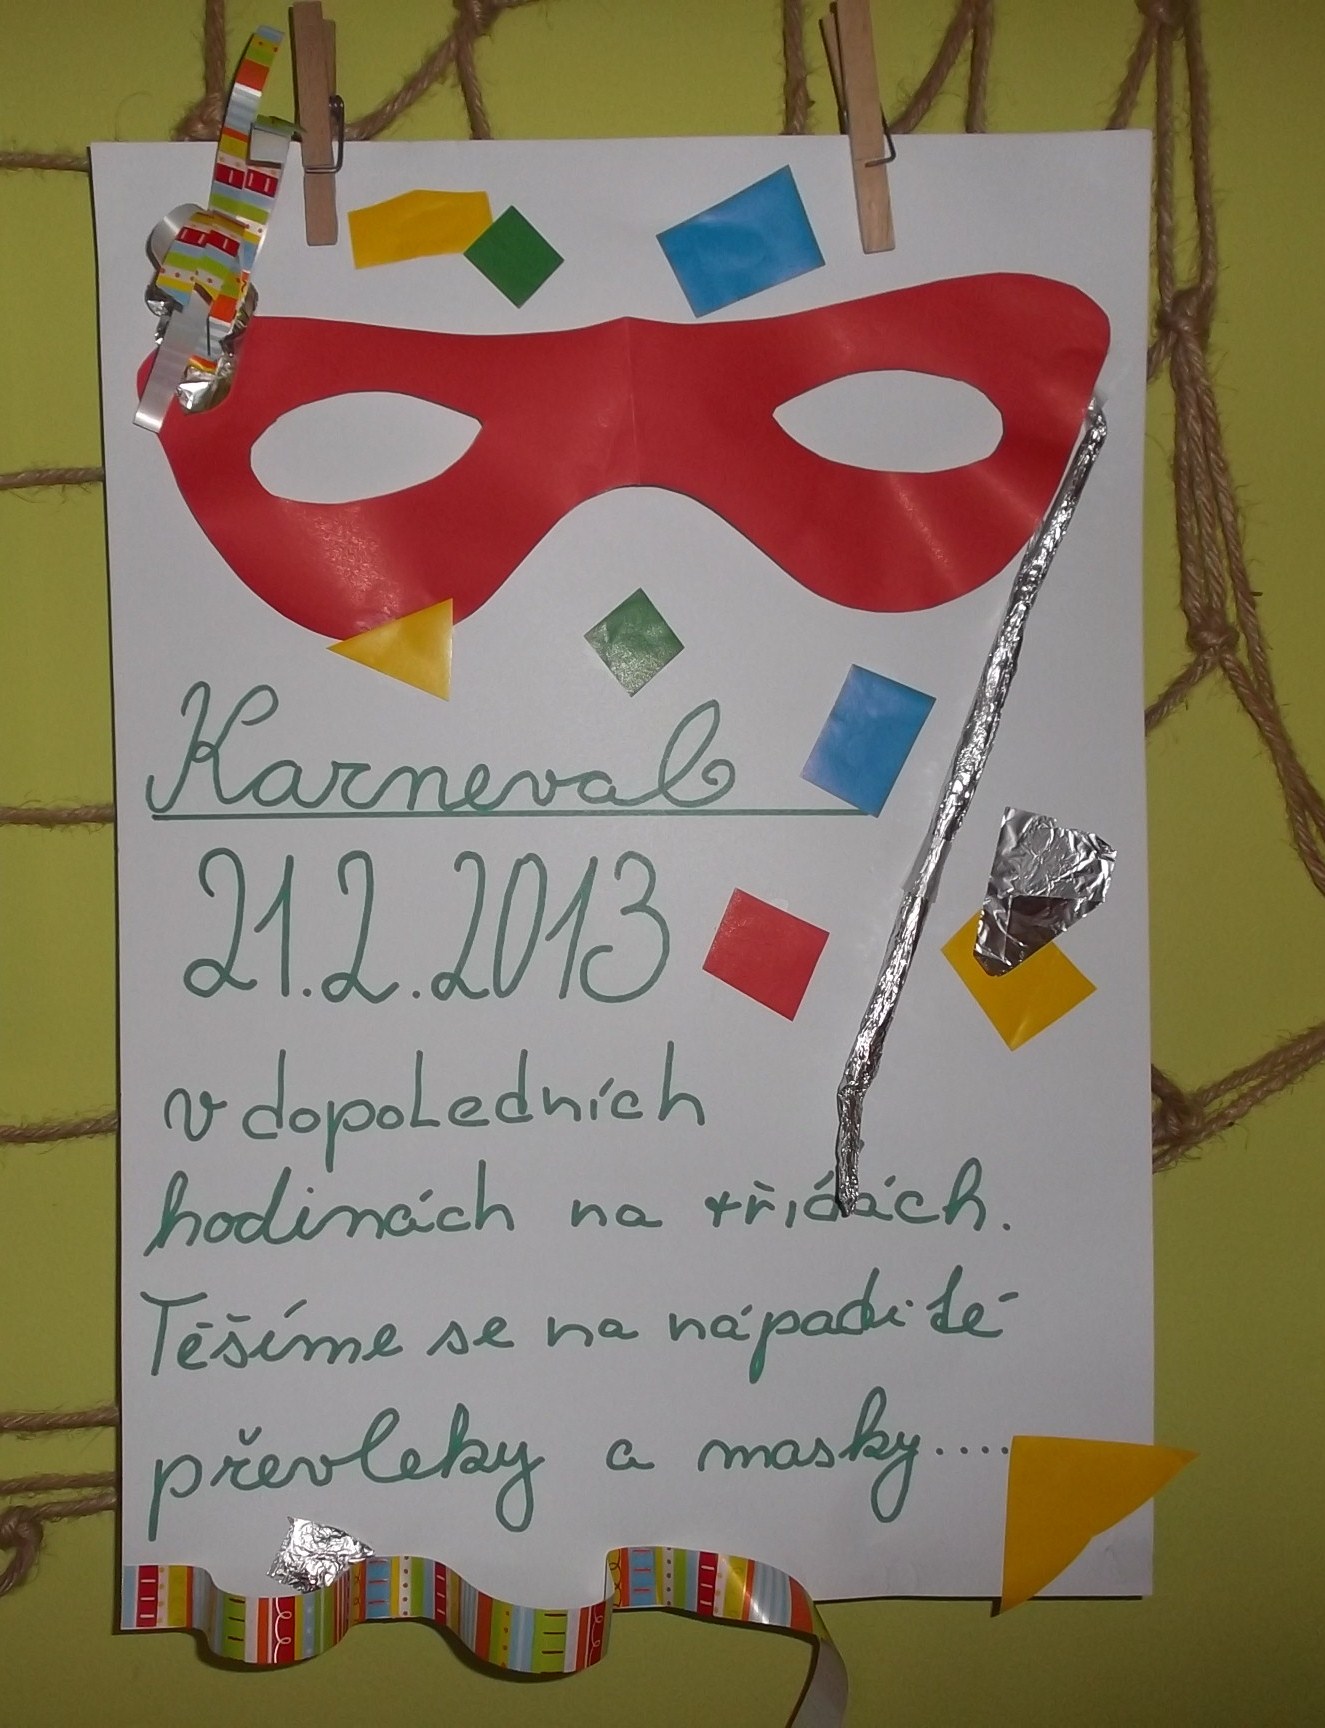 Karneval
21.2.2013
v dopoledních
hodinách na třídách.
Těšíme se na nápadité
převleky a masky....